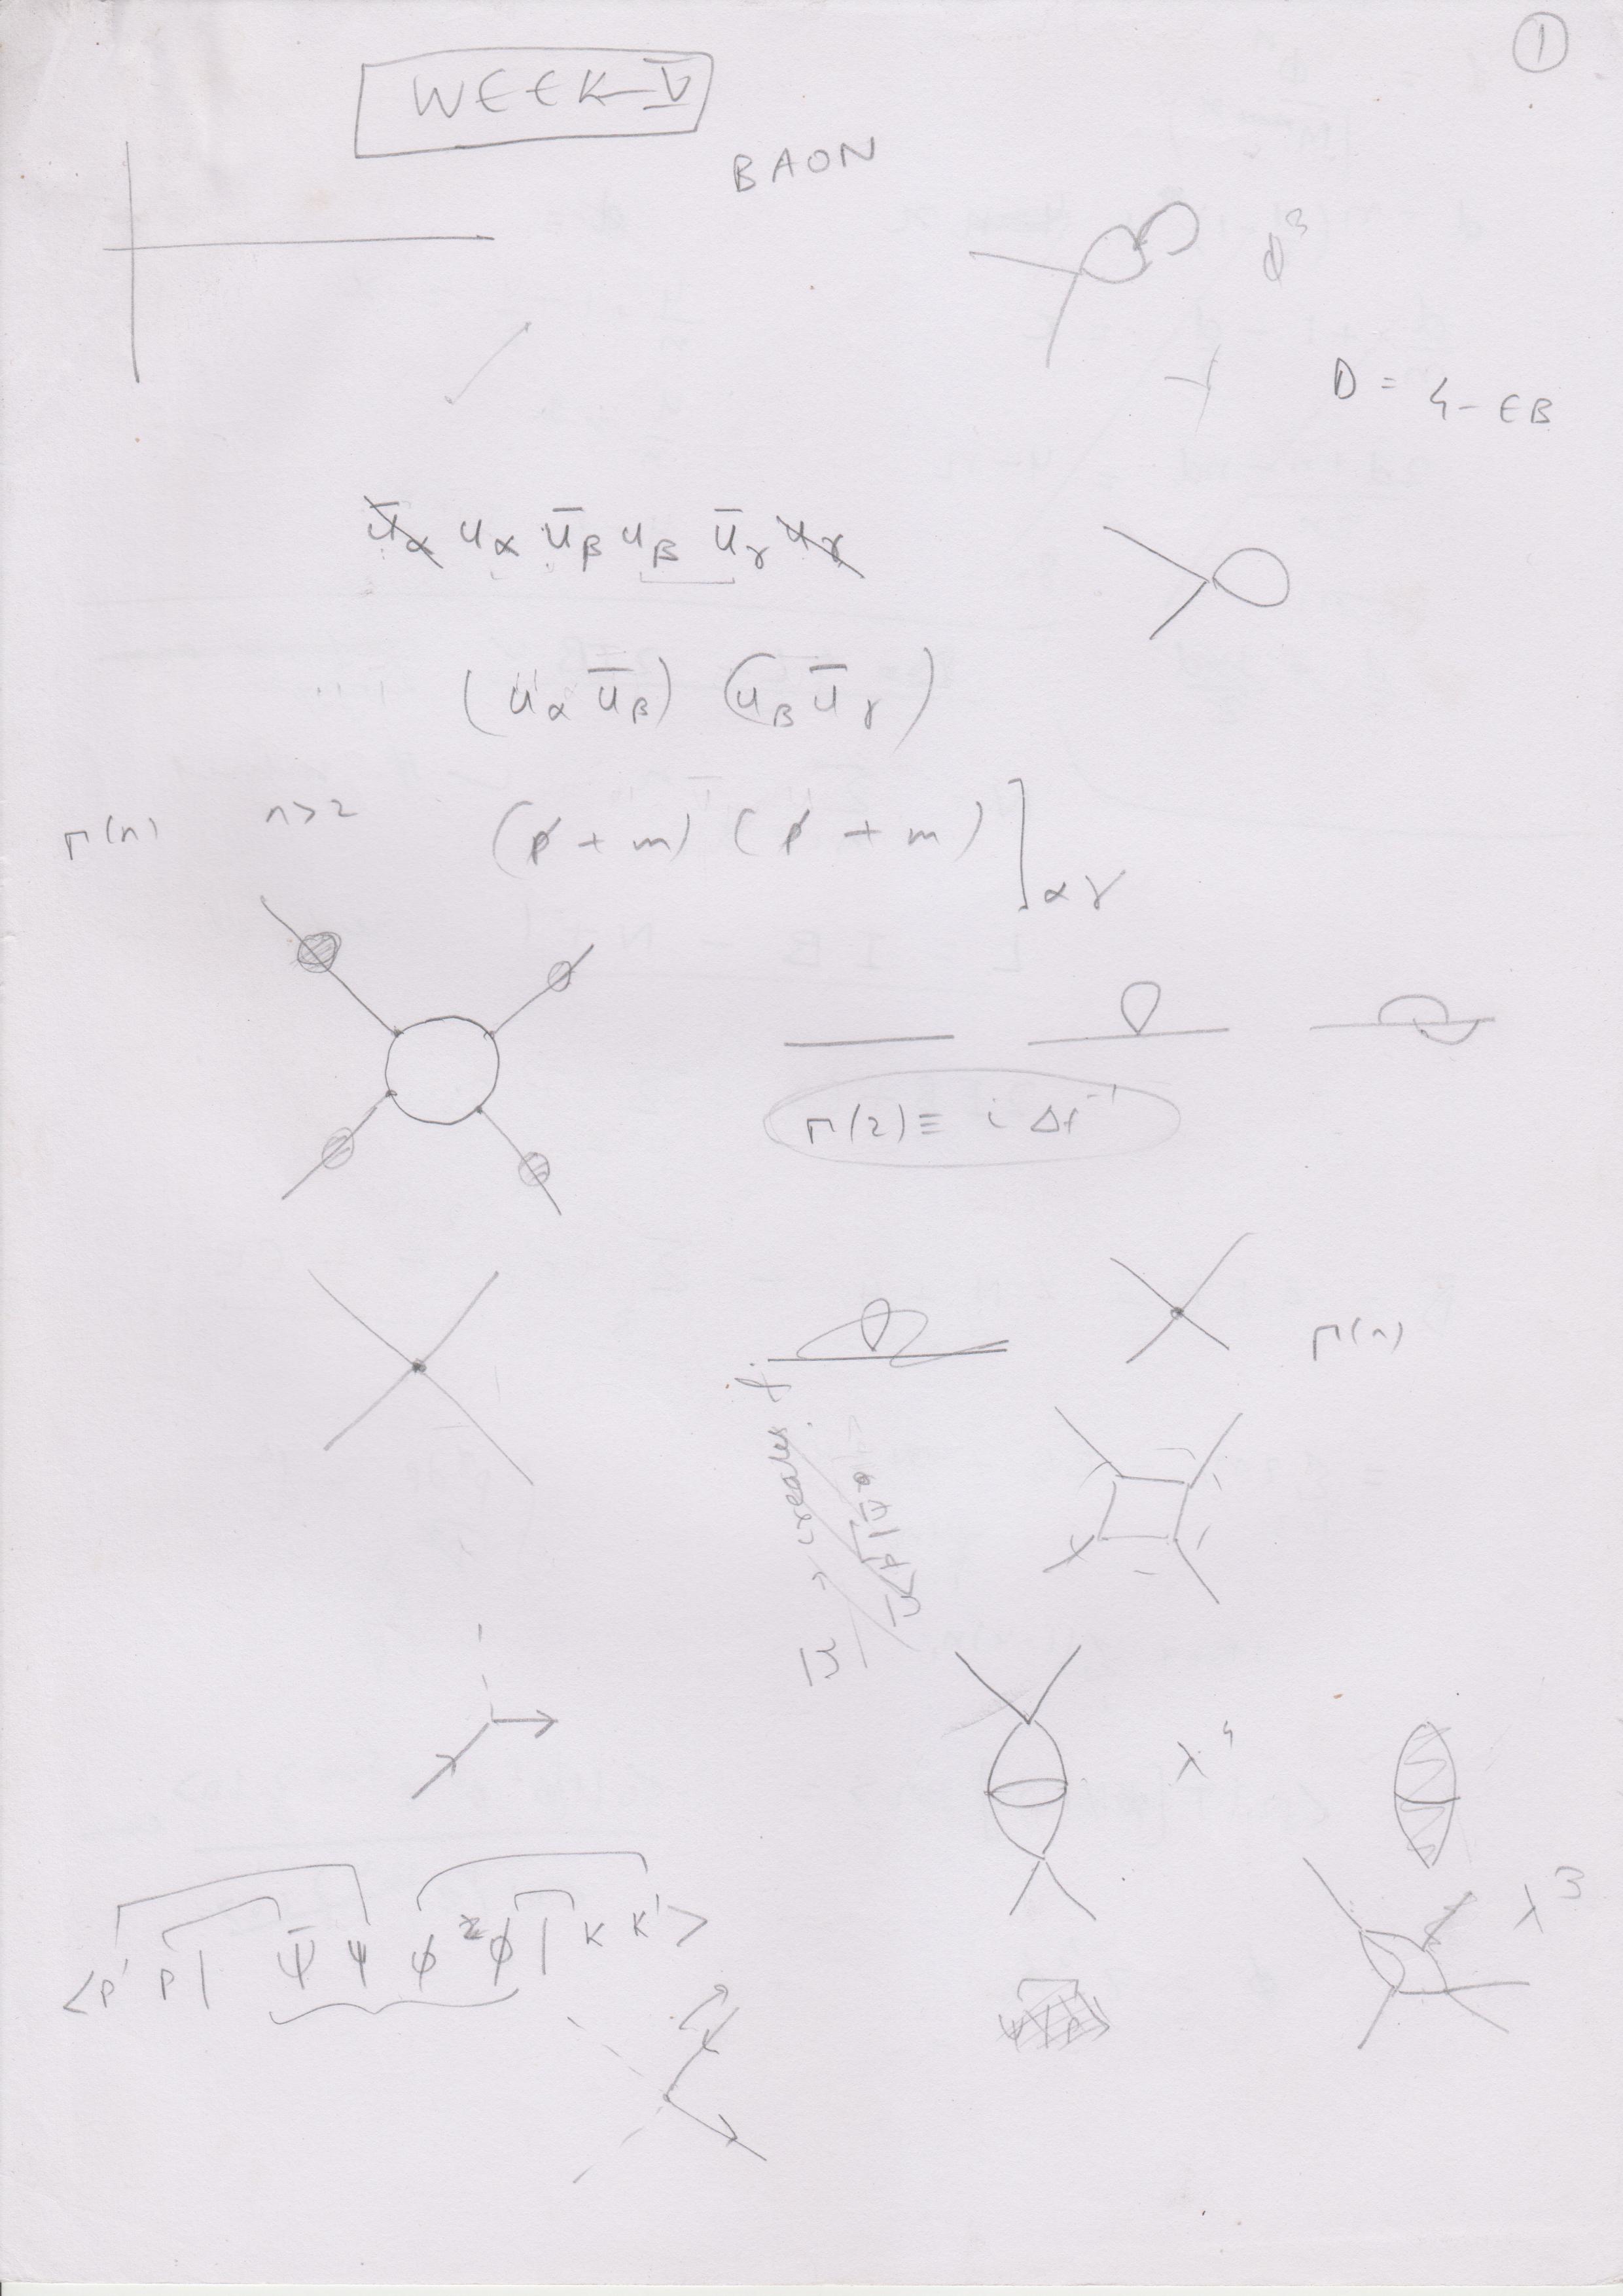 ①
WEEK-V
BAON
ϕ³
D = 4 - EB
ū_α u_α ū_β u_β ū_γ u_γ
(u_α ū_β) (u_β ū_γ)
Γ(n) n>2 (p̸ + m) (p̸ + m)]_αγ
Γ(2) ≡ i Δf⁻¹
Γ(n)
ū → creates f
λ⁴
λ³
<p' p| ψ̄ ψ ϕ ϕ | K K'>